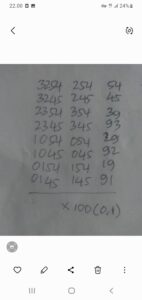 22.00
24%
3254 254 54
3245 245 45
2354 354 39
2345 345 93
1054 054 29
1045 045 92
0154 154 19
0145 145 91
x 100 (0,1)